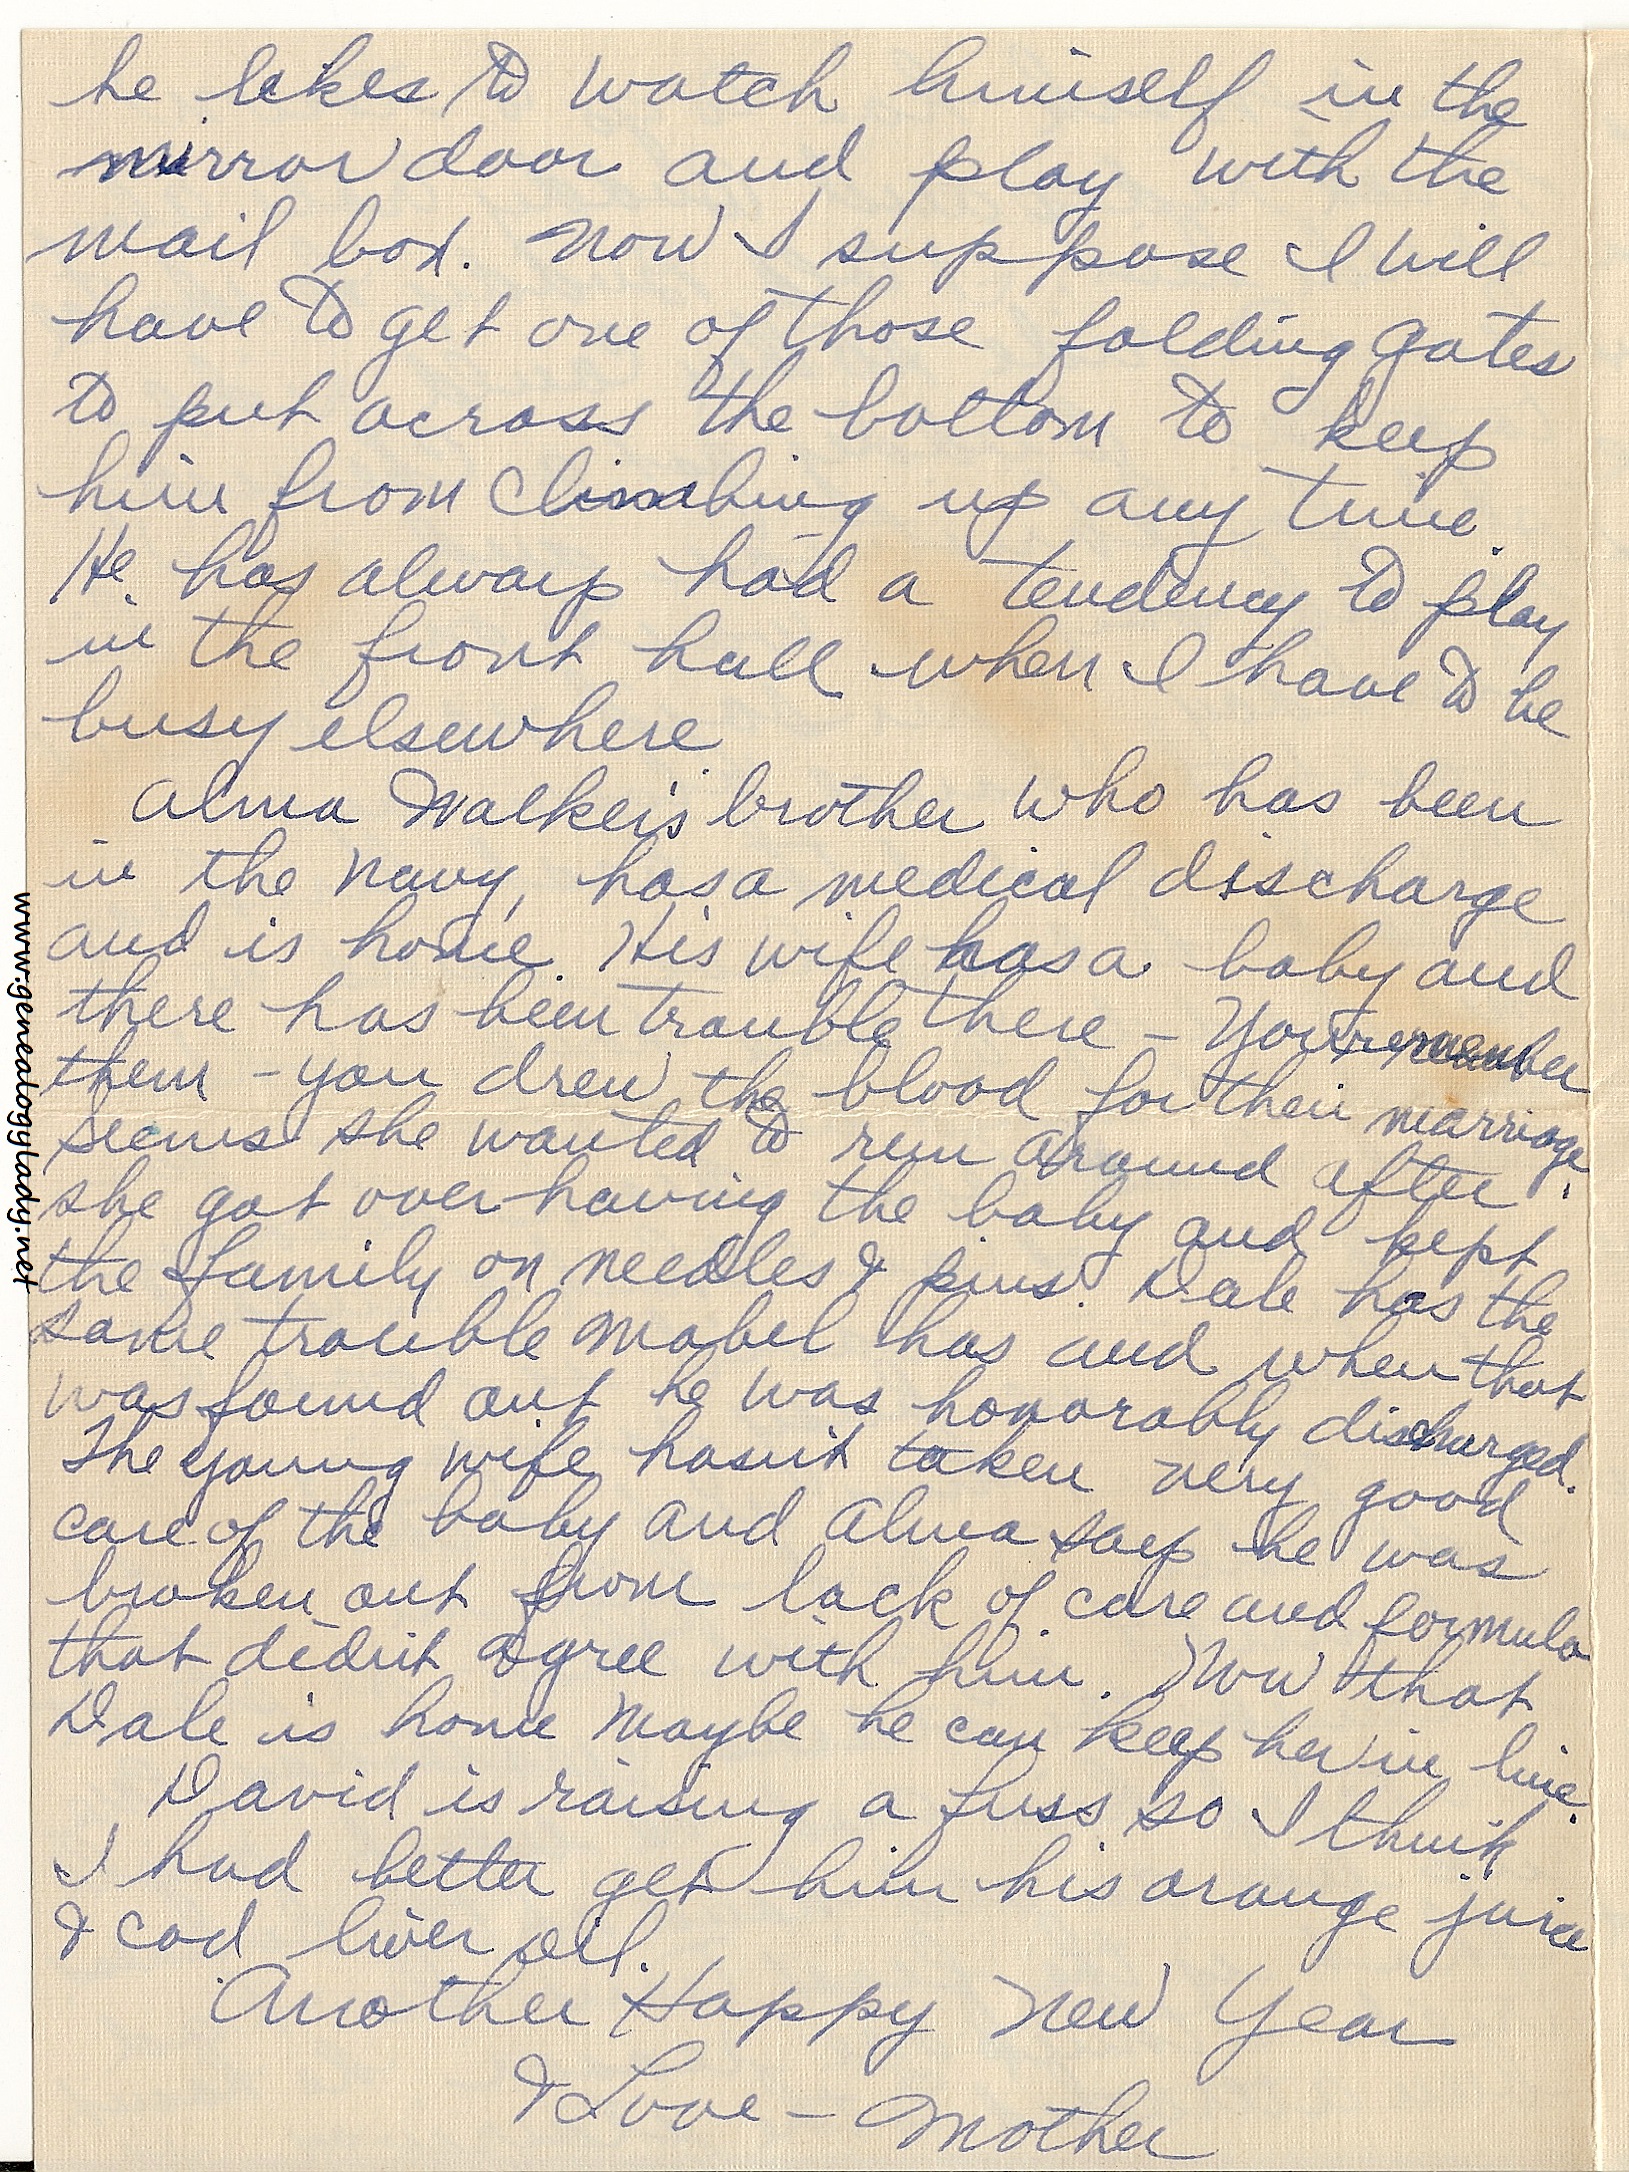 he likes to watch himself in the
mirror door and play with the
mail box. Now I suppose I will
have to get one of those folding gates
to put across the bottom to keep
him from climbing up any time.
He has always had a tendency to play
in the front hall when I have to be
busy elsewhere.
Alma Walker's brother who has been
in the Navy, has a medical discharge
and is home. His wife has a baby and
there has been trouble there – You remember
them – you drew the blood for their marriage.
Seems she wanted to run around after
she got over having the baby and kept
the family on needles & pins. Dale has the
same trouble Mabel has and when that
was found out he was honorably discharged.
The young wife hasn't taken very good
care of the baby and Alma says he was
broken out from lack of care and formula
that didn't agree with him. Now that
Dale is home maybe he can keep her in line.
David is raising a fuss so I think
I had better get him his orange juice
& cod liver oil.
Another Happy New Year
& Love – Mother
www.genealogylady.net